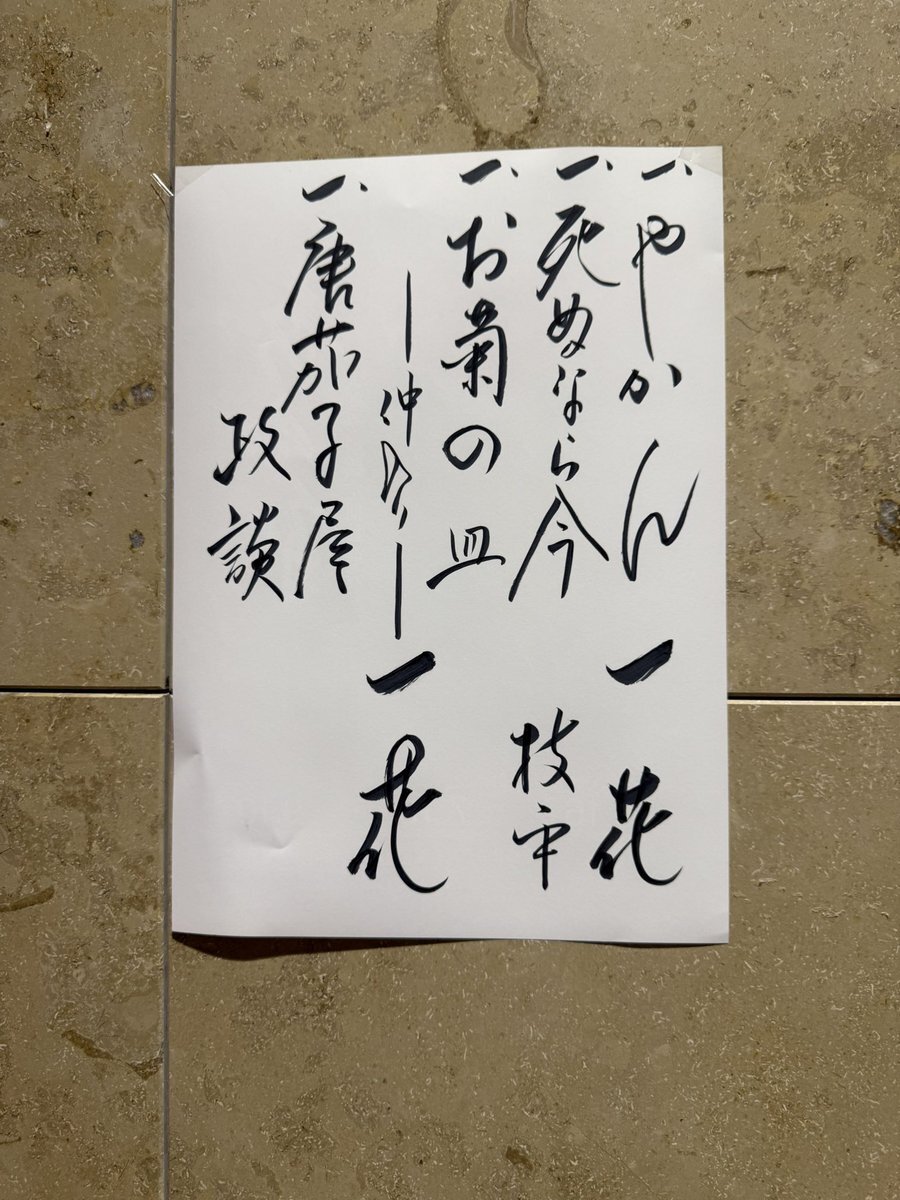 一、やかん 一花
一、死ぬなら今 枝平
一、お菊の皿
―仲入り―
一花
一、唐茄子屋
政談